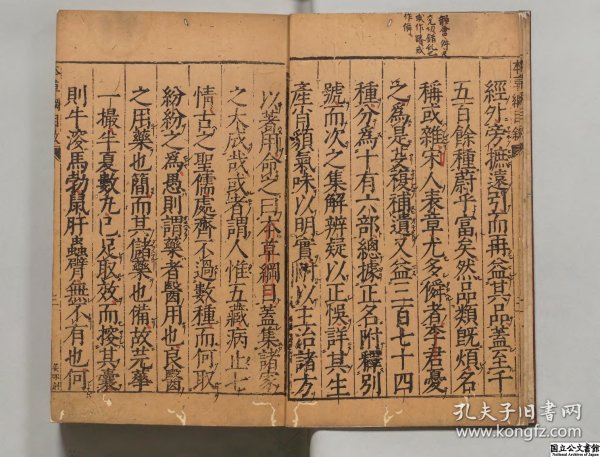 經外旁摭遠引而冊益其品蓋至千
五百餘種蔚乎富矣然品類既煩名
稱或雜宋人表章尤多僢者李君憂
之爲是叐後補遺又益三百七十四
種分爲十有六部總據正名附釋別
號而次之集解辨疑以正悞詳其生
產肖貌氣味以明實附以主治諸方
以著用命之曰本草綱目蓋集諸家
之大成哉或者謂人惟五藏病止七
情古之聖儒處齊不過數種而何取
紛紛之爲愚則謂藥者醫用也良醫
之用藥也簡而其儲藥也備故芫華
一撮半夏數丸已足取效而按其囊
則牛溲馬勃鼠肝蟲臂無不有也何
孔夫子旧書网
www.kongfz.com
国立公文書館
National Archives of Japan